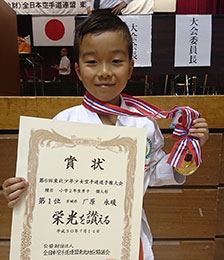 財)全日本空手道連盟 東
大会委員
大会委員長
賞状
第6回東北少年少女空手道選手権大会
種目 小学2年生男子 個人形
第1位 宮城県 广原 永瑛
栄光を讃える
平成30年7月14日
公益財団法人
全日本空手道連盟東北地区協議会